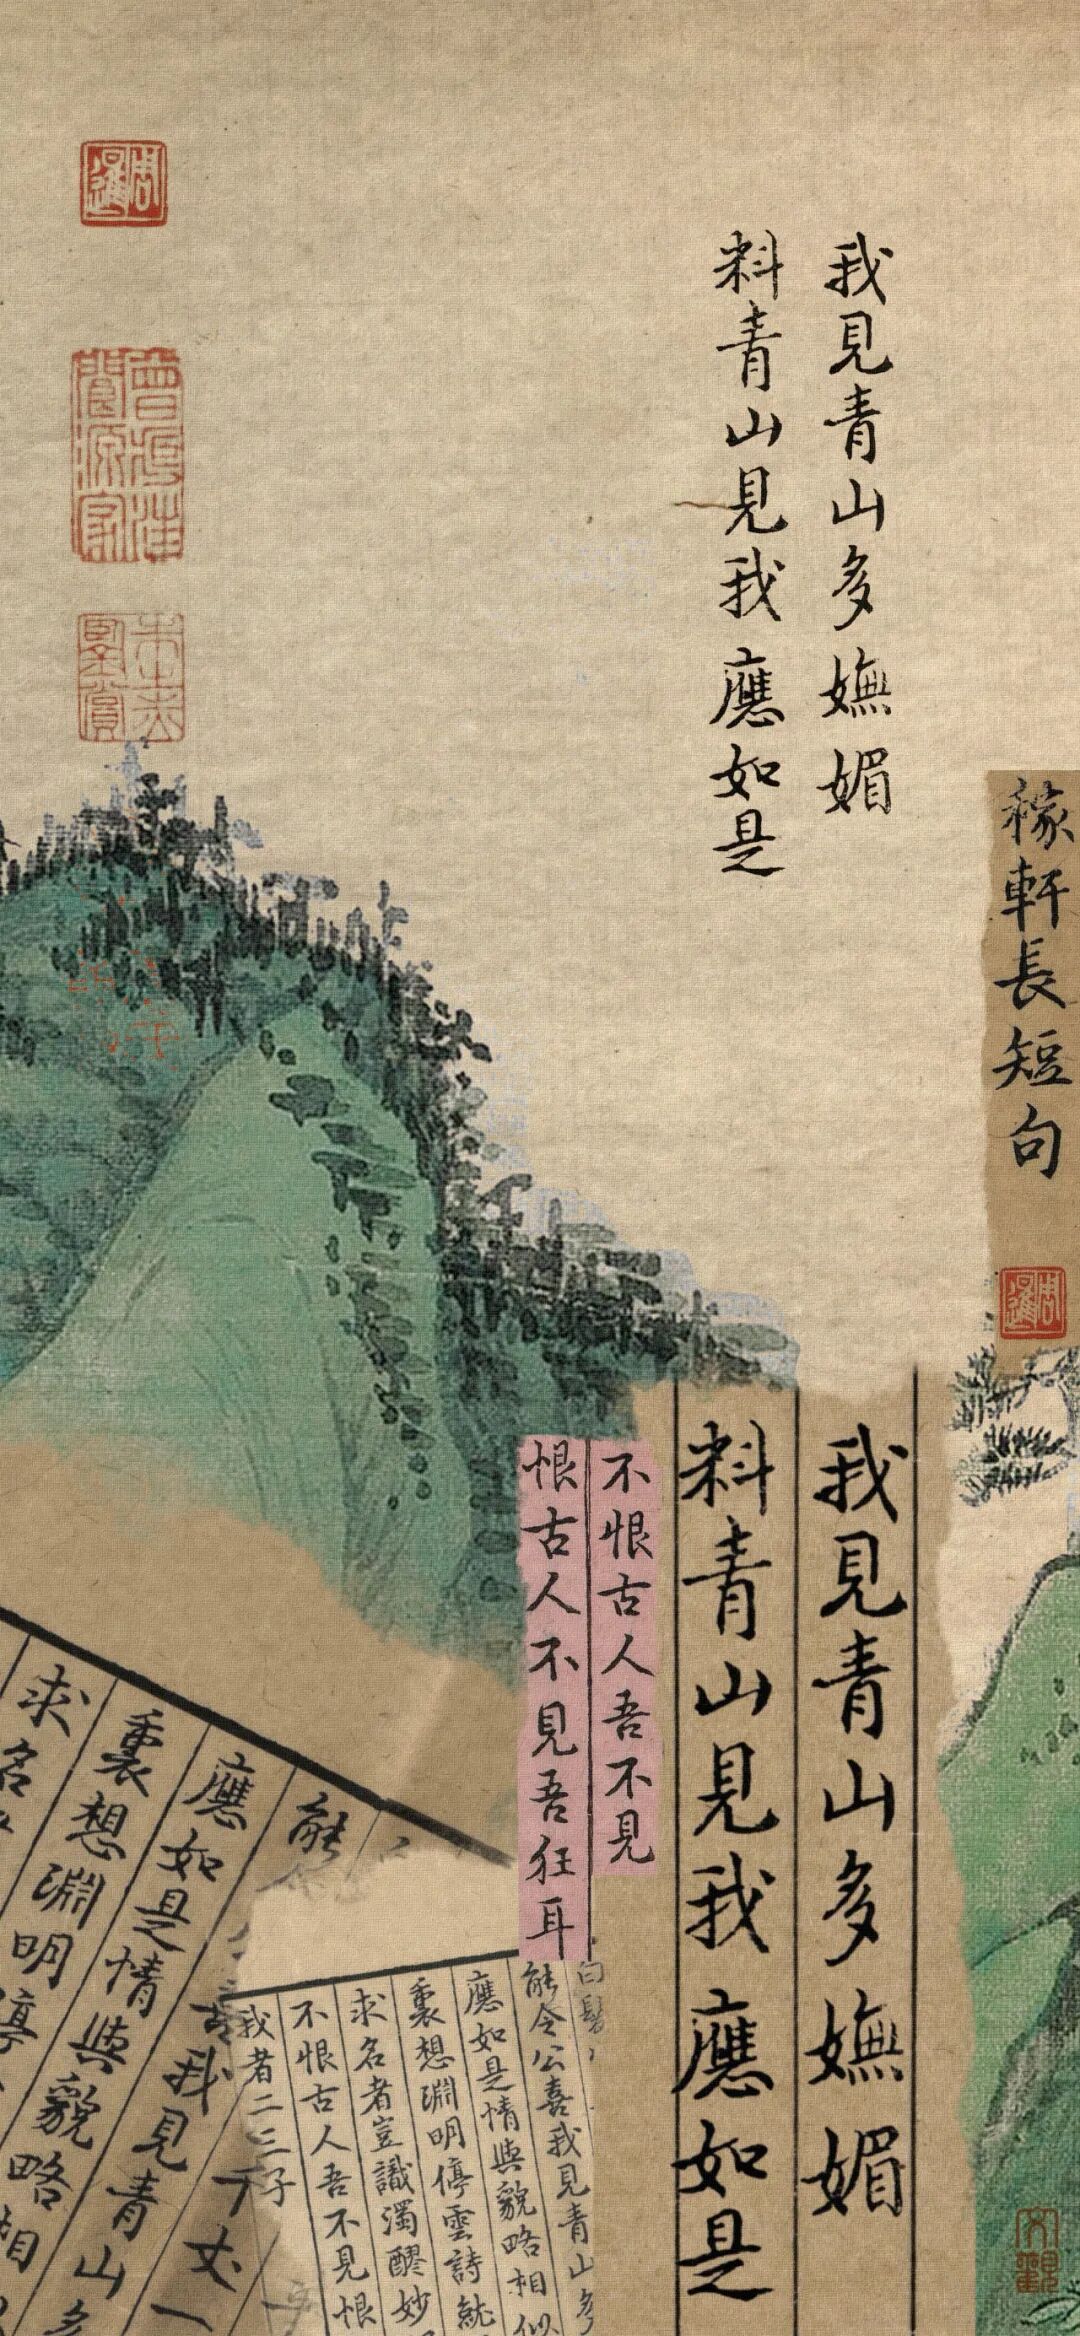 我見青山多嫵媚
料青山見我應如是
稼軒長短句
我見青山多嫵媚
料青山見我應如是
不恨古人吾不見
恨古人不見吾狂耳
能
應如是情與貌略相
裏想淵明停
求名
我見青山多
白髮
能令公喜我見青山多
應如是情與貌略相似
裏想淵明停雲詩就
求名者豈識濁醪妙
不恨古人吾不見恨
我者二三子